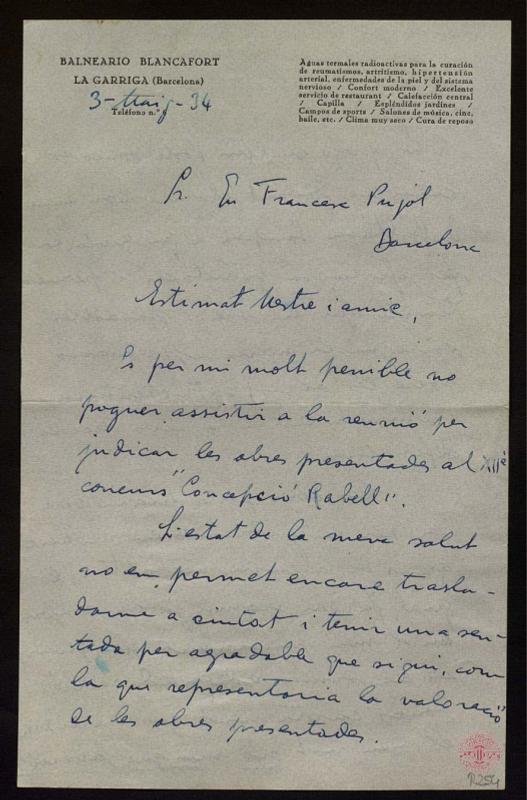 BALNEARIO BLANCAFORT
LA GARRIGA (Barcelona)
3-Maig-34
Teléfono n.º
Aguas termales radioactivas para la curación
de reumatismos, artritismo, hipertensión
arterial, enfermedades de la piel y del sistema
nervioso / Confort moderno / Excelente
servicio de restaurant / Calefacción central
/ Capilla / Espléndidos jardines /
Campos de sports / Salones de música, cine,
baile, etc. / Clima muy seco / Cura de reposo
Sr. En Francesc Pujol
Barcelona
Estimat Mestre i amic,
Es per mi molt penible no
poguer assistir a la reunió per
judicar les obres presentades al XIIè
concurs "Concepció Rabell".
L'estat de la meva salut
no em permet encare trasla-
darme a ciutat i tenir una sen-
tada per agradable que sigui, com
la que representaria la valoració
de les obres presentades.
R254